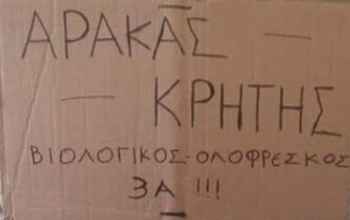 ΑΡΑΚΑΣ —
— ΚΡΗΤΗΣ
ΒΙΟΛΟΓΙΚΟΣ-ΟΛΟΦΡΕΣΚΟΣ
ΖΑ !!!